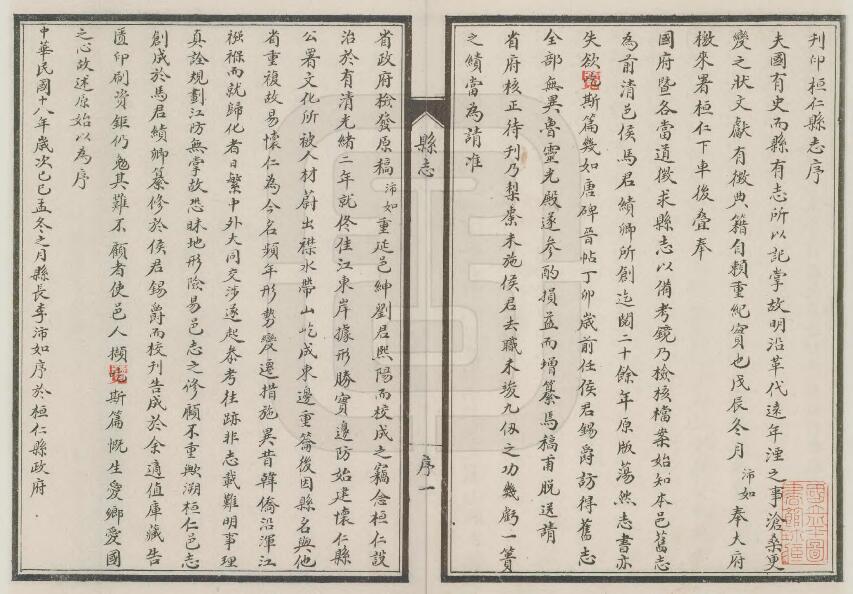 刊印桓仁縣志序
夫國有史而縣有志所以記掌故明沿革代遠年湮之事滄桑更
變之狀文獻有徵典籍自賴重紀實也戊辰冬月沛如奉大府
檄來署桓仁下車後叠奉
國府暨各當道徵求縣志以備考鏡乃檢核檔案始知本邑舊志
為前清邑侯馬君績卿所創迄閱二十餘年原版蕩然志書亦
失欲覓斯篇幾如唐碑晉帖丁卯歲前任侯君錫爵訪得舊志
全部無異魯靈光殿遂參酌損益而增纂馬稿甫脫送請
省府核正待刊乃梨棗未施侯君去職未竣九仞之功幾虧一簣
之績當為請准
縣志
序一
省政府檢發原稿沛如重延邑紳劉君熙陽而校成之竊念桓仁設
治於有清光緒二年就佟佳江東岸據形勝實邊防始建懷仁縣
公署文化所被人材蔚出襟水帶山屹成東邊重篇後因縣名與他
省重複故易懷仁為今名頻年形勢變遷措施異昔韓僑沿渾江
襁褓而就歸化者日繁中外大同交涉遂起叅考往跡非志載難明事理
真詮規劃江防無掌故恐昧地形險易邑志之修顧不重歟溯桓仁邑志
創成於馬君績卿纂修於侯君錫爵而校刊告成於余適值庫藏告
匱印刷資鉅仍勉其難不顧者使邑人擷斯篇慨生愛鄉愛國
之心故述原始以為序
中華民國十八年歲次己巳孟冬之月縣長李沛如序於桓仁縣政府